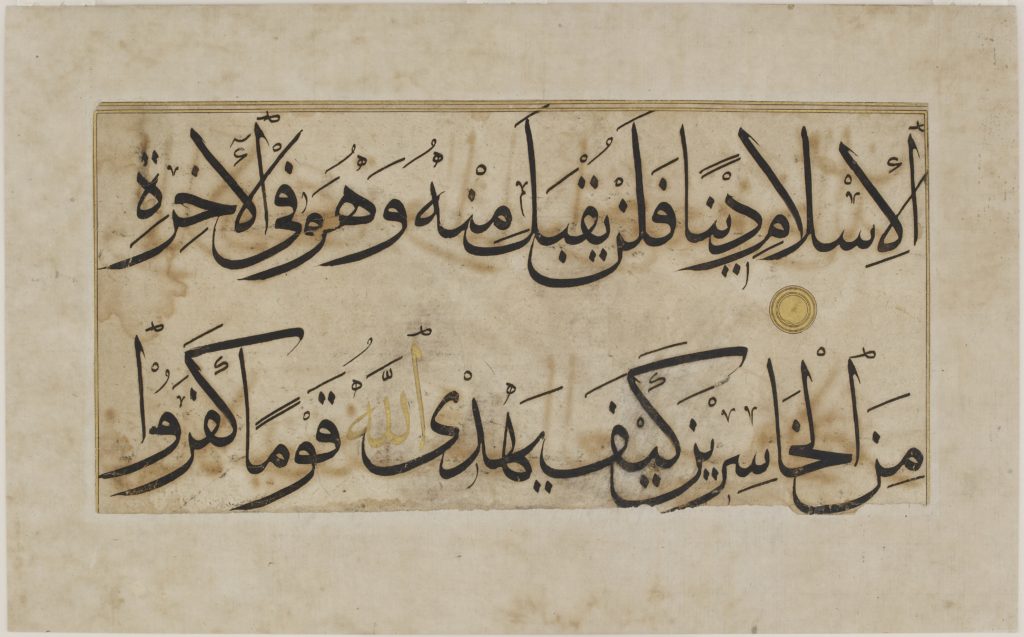 ٱلۡإِسۡلَامِ دِينًا فَلَنۡ يُقۡبَلَ مِنۡهُ وَهُوَ فِي ٱلۡأٓخِرَةِ
مِنَ ٱلۡخَاسِرِينَ كَيۡفَ يَهۡدِي ٱللَّهُ قَوۡمًا كَفَرُوۡا